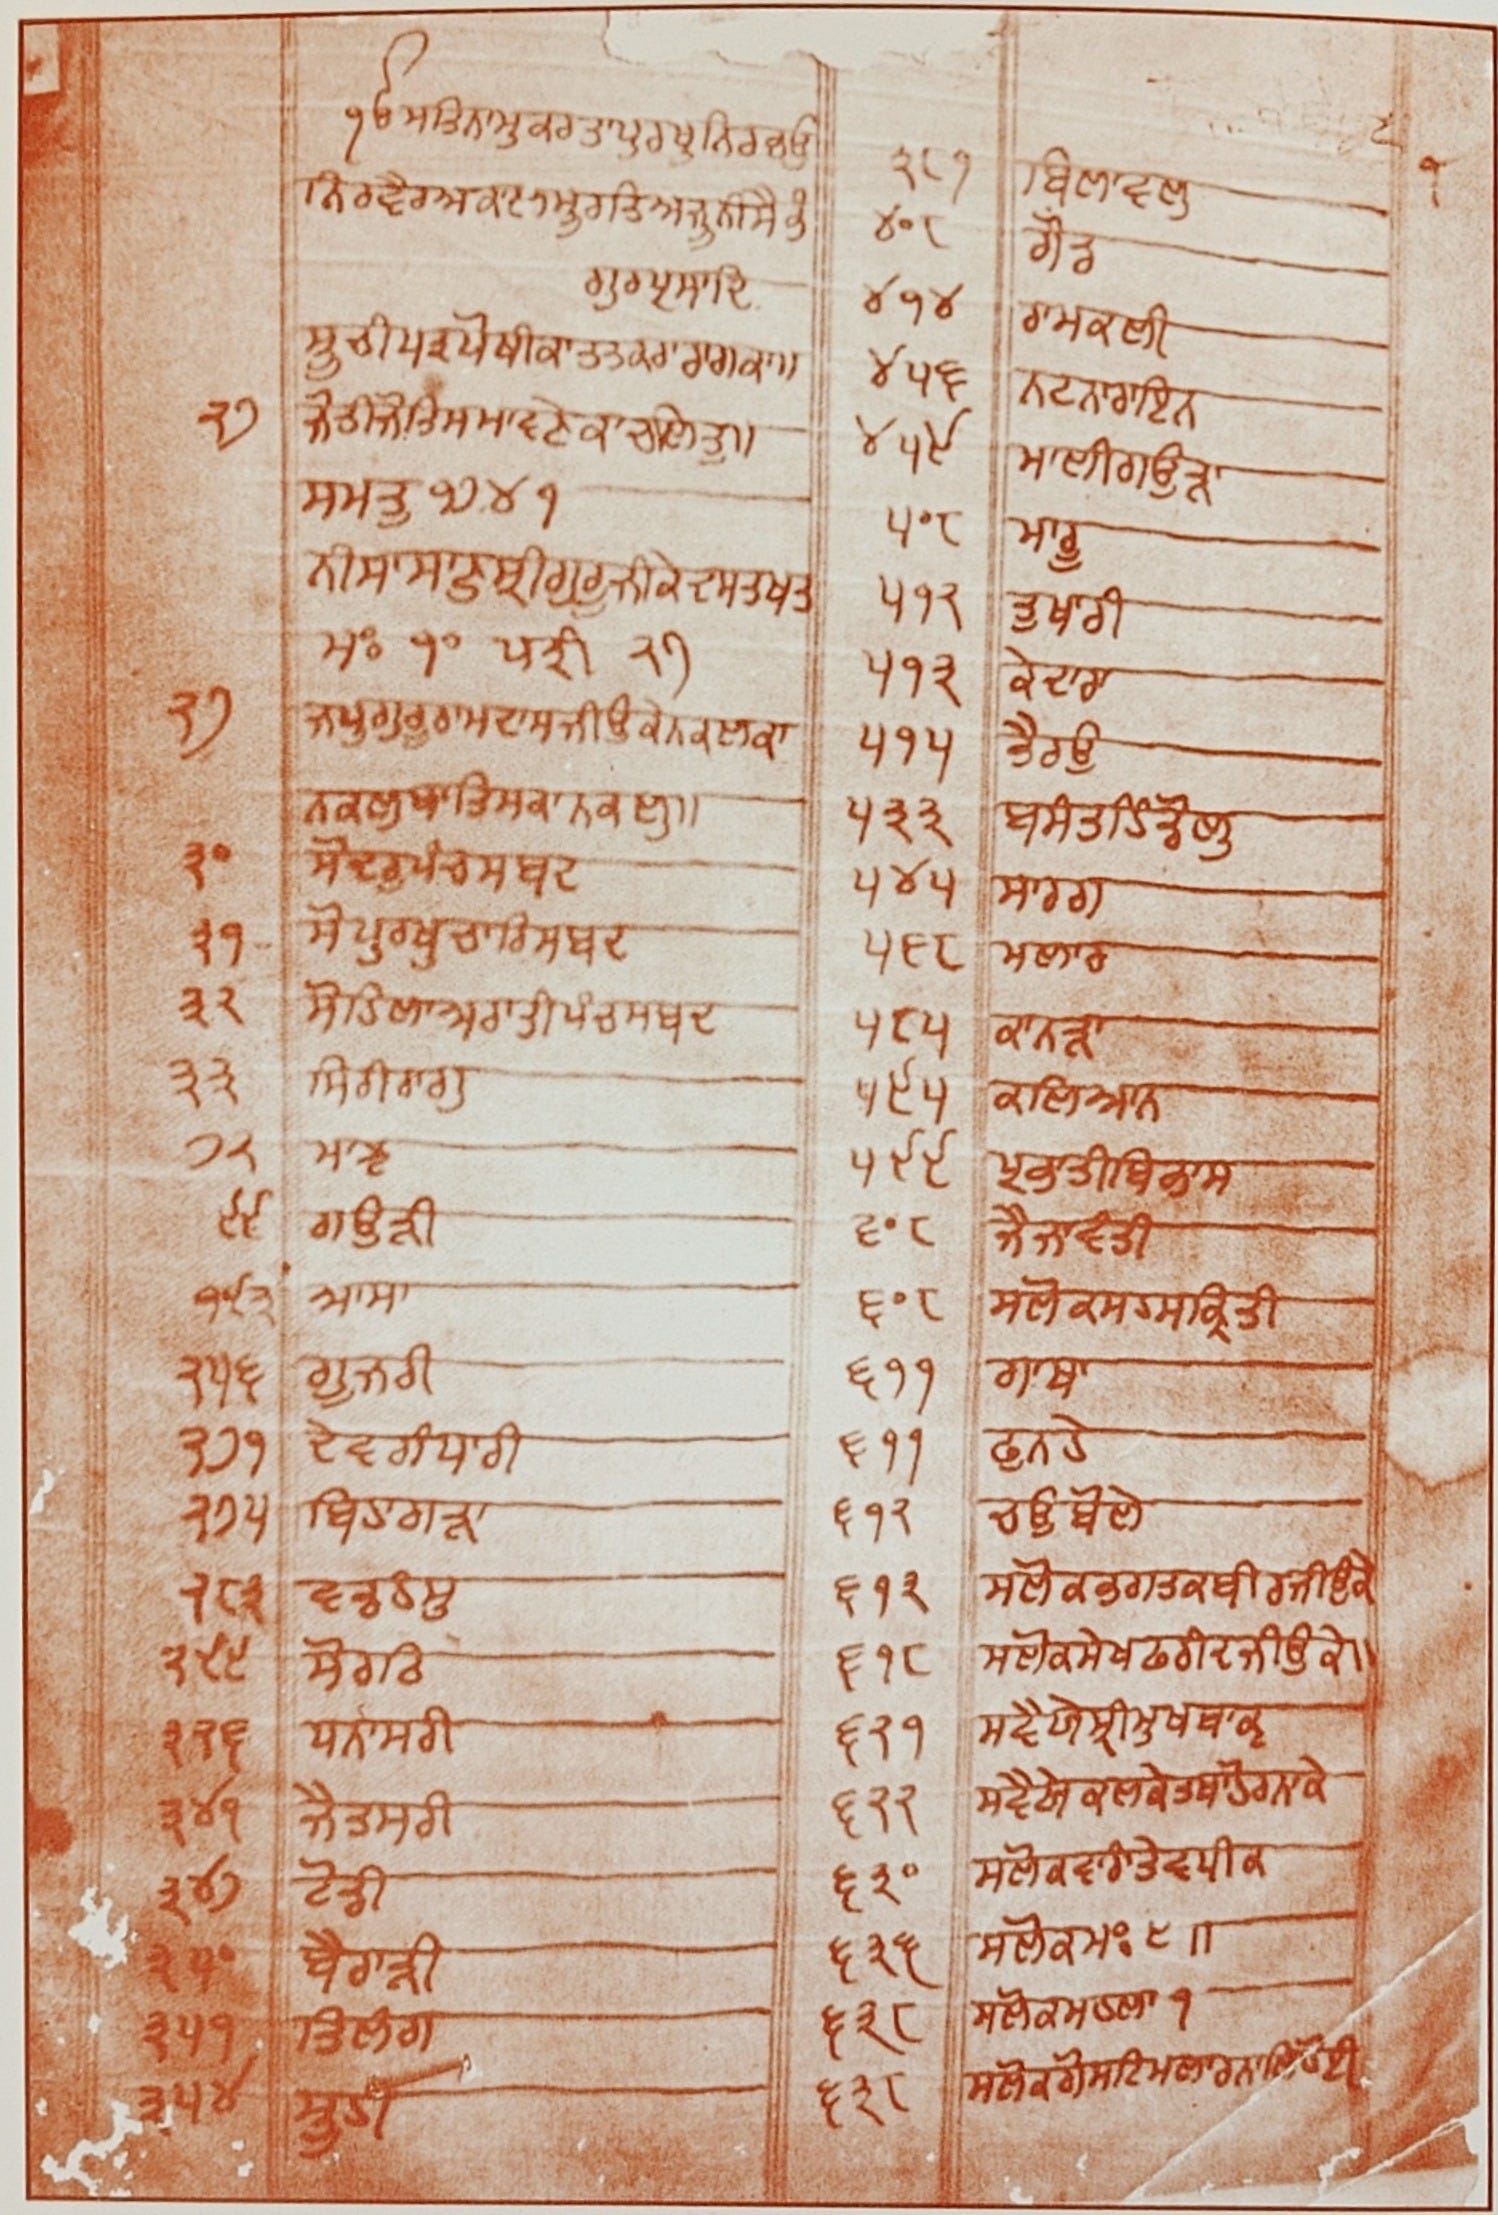 ੴ ਸਤਿਨਾਮੁ ਕਰਤਾ ਪੁਰਖੁ ਨਿਰਭਉ
ਨਿਰਵੈਰ ਅਕਾਲ ਮੂਰਤਿ ਅਜੂਨੀ ਸੈਭੰ
ਗੁਰਪ੍ਰਸਾਦਿ
ਸੂਚੀ ਪਤ੍ਰ ਪੋਥੀ ਕਾ ਤਤਕਰਾ ਰਾਗਕਾ॥
੨੭ ਜੋਤੀ ਜੋਤਿ ਸਮਾਵਣੇ ਕਾ ਚਲਿਤ੍ਰ॥
ਸਮਤੁ ੧੭੪੧
ਨੀਸਾਸਾਣੁ ਸ੍ਰੀ ਗੁਰੂ ਜੀ ਕੇ ਦਸਤਖਤ
ਮਃ ੧੦ ਪਤ੍ਰੀ ੨੭
੨੭ ਜਪੁ ਗੁਰੂ ਰਾਮਦਾਸ ਜੀਉ ਕੇ ਨਕਲ ਕਾ
ਨਕਲੁ ਥਾ ਤਿਸਕਾ ਨਕਲੁ॥
੩੦ ਸੋਦਰੁ ਪੰਚ ਸਬਦ
੩੧ ਸੋ ਪੁਰਖੁ ਚਾਰਿ ਸਬਦ
੩੨ ਸੋਹਿਲਾ ਅਰਾਤੀ ਪੰਚ ਸਬਦ
੩੩ ਸਿਰੀਰਾਗੁ
੭੨ ਮਾਝ
੯੯ ਗਉੜੀ
੧੯੩ ਆਸਾ
੨੫੬ ਗੂਜਰੀ
੨੭੧ ਦੇਵਗੰਧਾਰੀ
੨੭੫ ਬਿਹਾਗੜਾ
੨੮੩ ਵਡਹੰਸੁ
੨੯੯ ਸੋਰਠਿ
੩੨੬ ਧਨਾਸਰੀ
੩੪੧ ਜੈਤਸਰੀ
੩੪੭ ਟੋਡੀ
੩੫੦ ਬੈਰਾੜੀ
੩੫੧ ਤਿਲੰਗ
੩੫੪ ਸੂਹੀ
੧
੩੮੧ ਬਿਲਾਵਲੁ
੪੦੮ ਗੌਡ
੪੧੪ ਰਾਮਕਲੀ
੪੫੬ ਨਟਨਾਰਾਇਨ
੪੫੯ ਮਾਲੀਗਉੜਾ
੫੦੮ ਮਾਰੂ
੫੧੨ ਤੁਖਾਰੀ
੫੧੩ ਕੇਦਾਰਾ
੫੧੫ ਭੈਰਉ
੫੩੩ ਬਸੰਤ ਹਿੰਡੋਲੁ
੫੪੫ ਸਾਰਗ
੫੬੮ ਮਲਾਰ
੫੮੫ ਕਾਨੜਾ
੫੯੫ ਕਲਿਆਨ
੫੯੯ ਪ੍ਰਭਾਤੀ ਬਿਭਾਸ
੬੦੮ ਜੈਜਾਵੰਤੀ
੬੦੮ ਸਲੋਕ ਸਹਸਕ੍ਰਿਤੀ
੬੧੧ ਗਾਥਾ
੬੧੧ ਫੁਨਹੇ
੬੧੨ ਚਉਬੋਲੇ
੬੧੩ ਸਲੋਕ ਭਗਤ ਕਬੀਰ ਜੀਉ ਕੇ
੬੧੮ ਸਲੋਕ ਸੇਖ ਫਰੀਦ ਜੀਉ ਕੇ॥
੬੨੧ ਸਵੈਯੇ ਸ੍ਰੀ ਮੁਖਬਾਕ
੬੨੨ ਸਵੈਯੇ
੬੩੦ ਸਲੋਕ ਵਾਰਾਂ ਤੇ ਵਧੀਕ
੬੩੬ ਸਲੋਕ ਮਃ ੯॥
੬੩੮ ਸਲੋਕ ਮਹਲਾ ੧
੬੩੮ ਸਲੋਕ ਗੋਸਟਿ ਮਲਾਰ ਨਾਲਿ ਹੋਈ